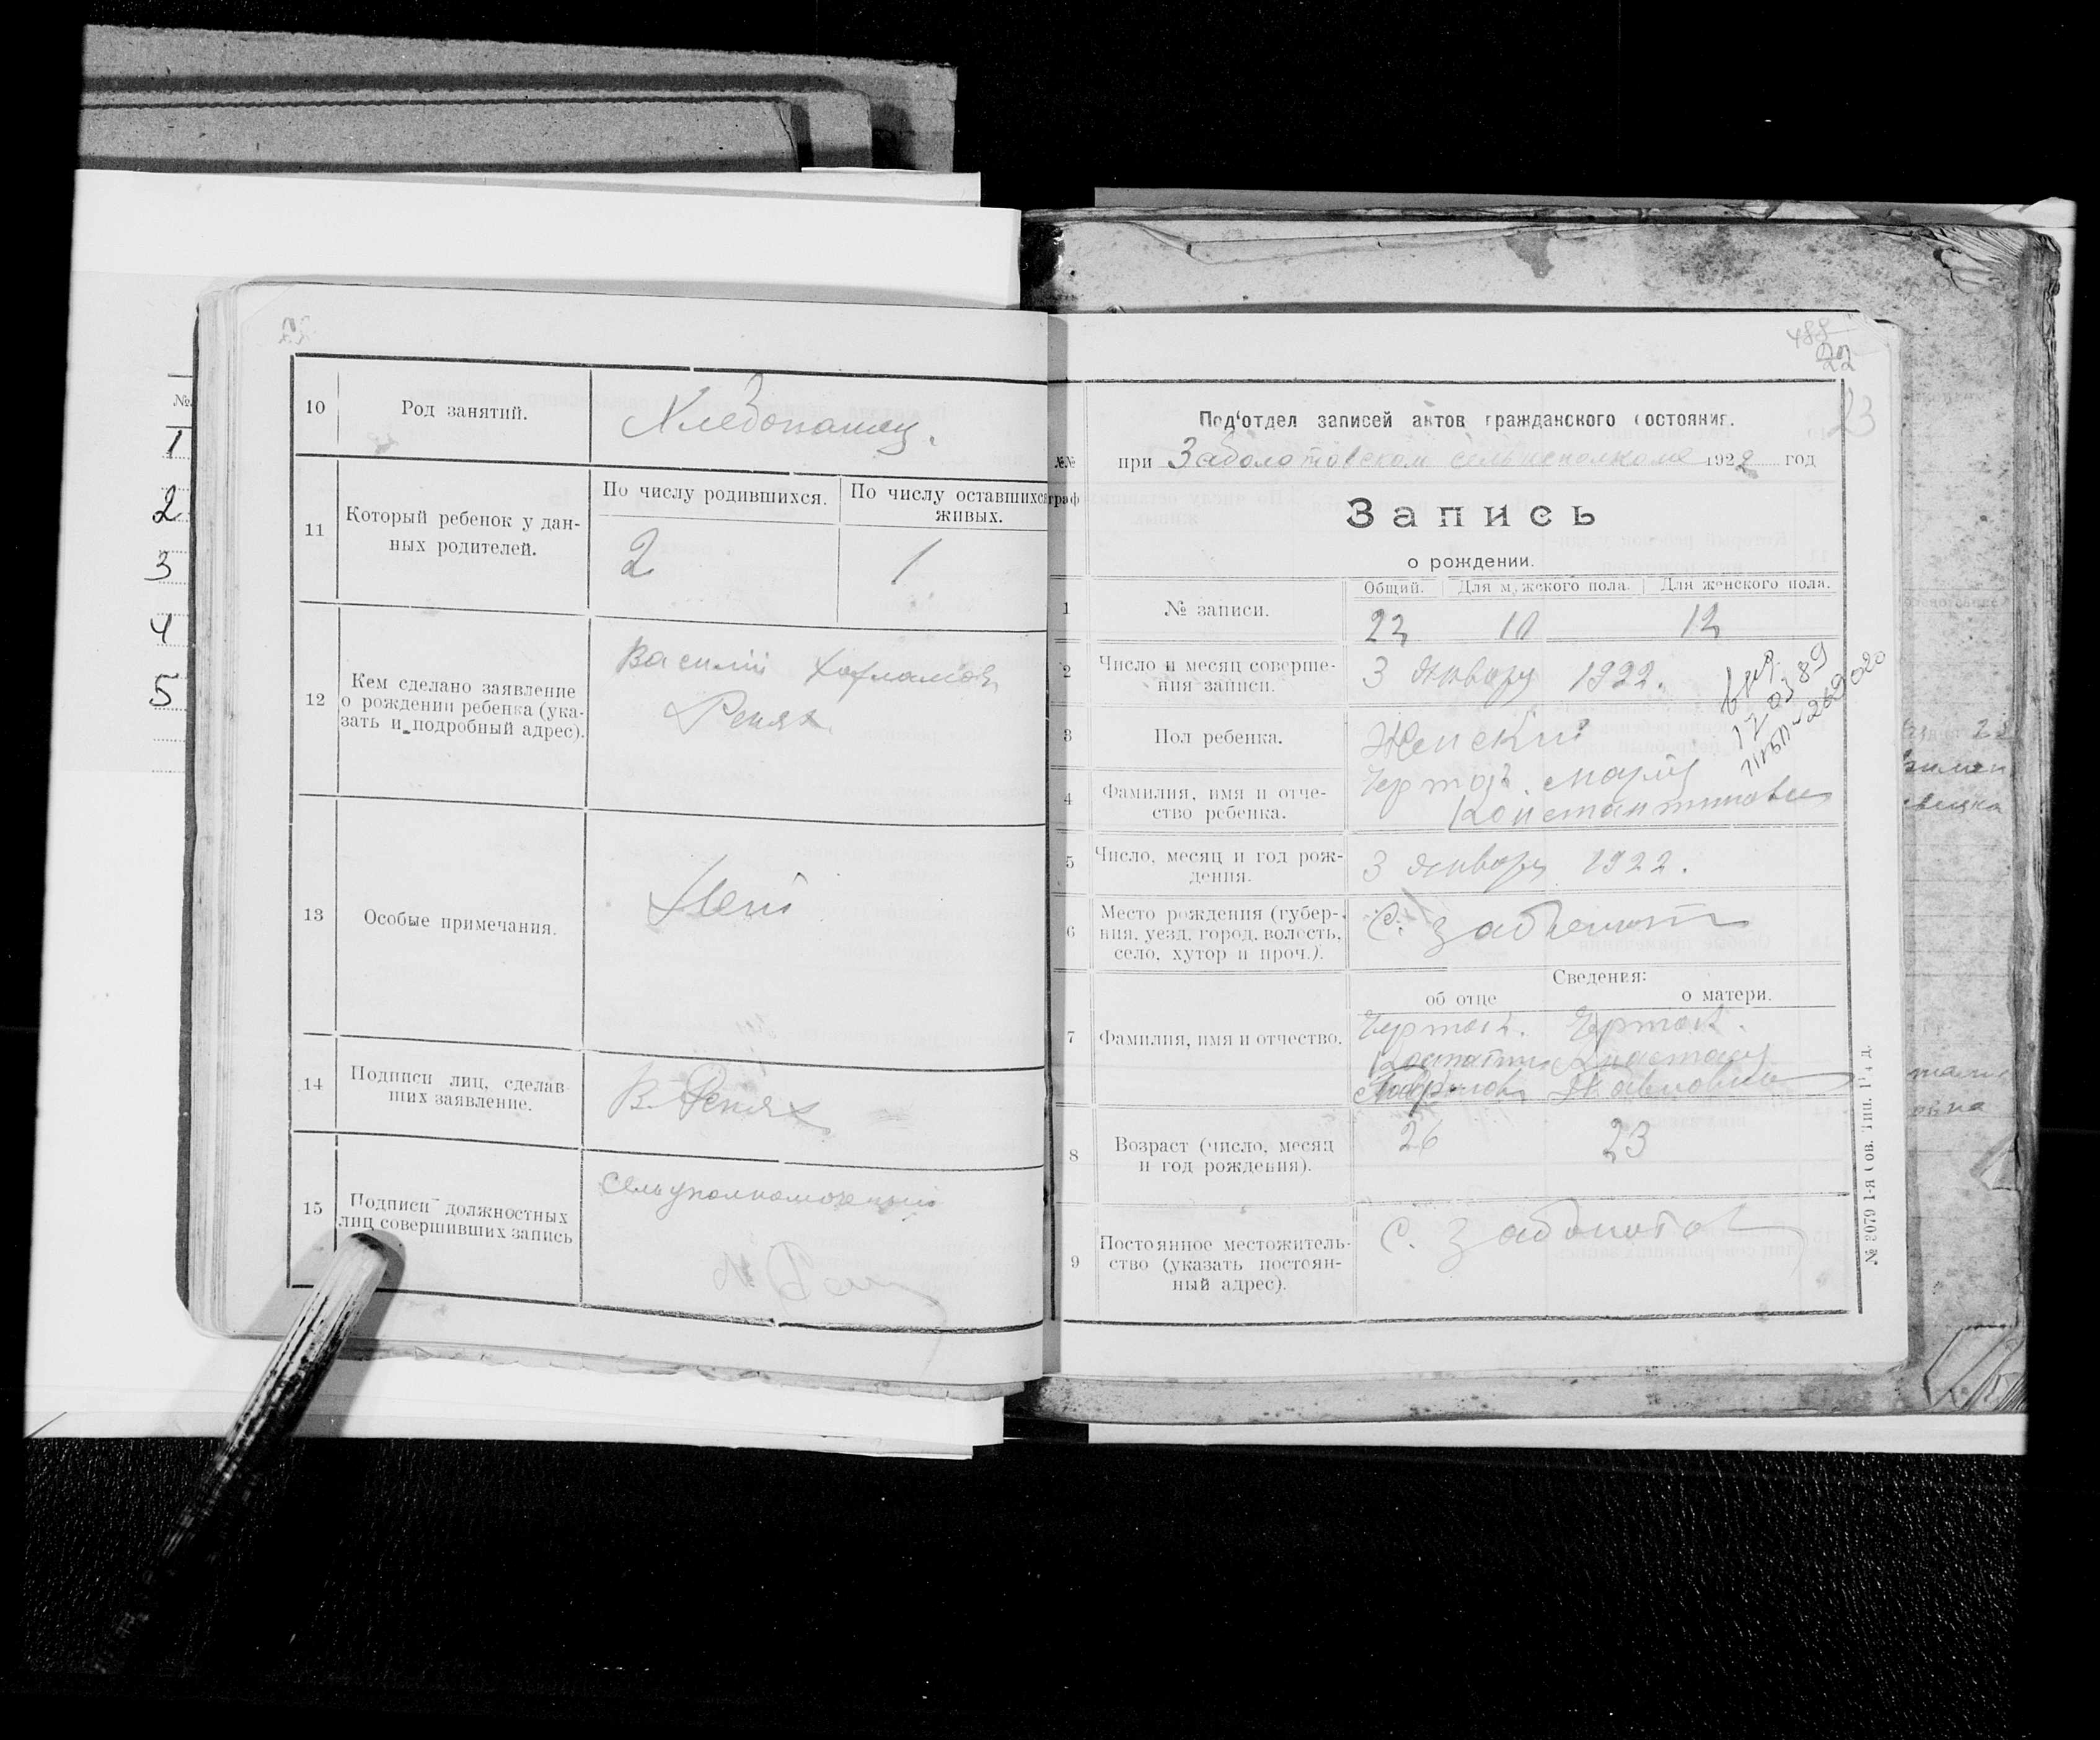 №
1
2
3
4
5
10 Род занятий. Хлебопашец.
11 Который ребенок у дан-
ных родителей.
По числу родившихся. По числу оставшихся
живых.
2 1
12 Кем сделано заявление
о рождении ребенка (ука-
зать и подробный адрес).
Василий
Репях
13 Особые примечания. Нет
14 Подписи лиц, сделав-
ших заявление.
В. Репях
15 Подписи должностных
лиц совершивших запись
Сельуполномоченный
488
22
23
Под'отдел записей актов гражданского состояния.
№№ граф
при Заболотовском сельисполкоме 1922 год
Запись
о рождении.
1 № записи.
Общий. Для мужского пола. Для женского пола.
22 10 12
2 Число и месяц соверше-
ния записи.
3 Январу 1922.
3 Пол ребенка. Женский
17 03 89
269020
4 Фамилия, имя и отче-
ство ребенка.
Черток Мария
Константиновна
5 Число, месяц и год рож-
дения.
3 январу 1922.
6 Место рождения (губер-
ния, уезд, город, волость,
село, хутор и проч.).
С.
Сведения:
об отце о матери.
7 Фамилия, имя и отчество.
Черток. Черток.
Павловна
8 Возраст (число, месяц
и год рождения).
26 23
9 Постоянное местожитель-
ство (указать постоян-
ный адрес).
С. Заболотов
№ 3079 1-я Сов. Тип.